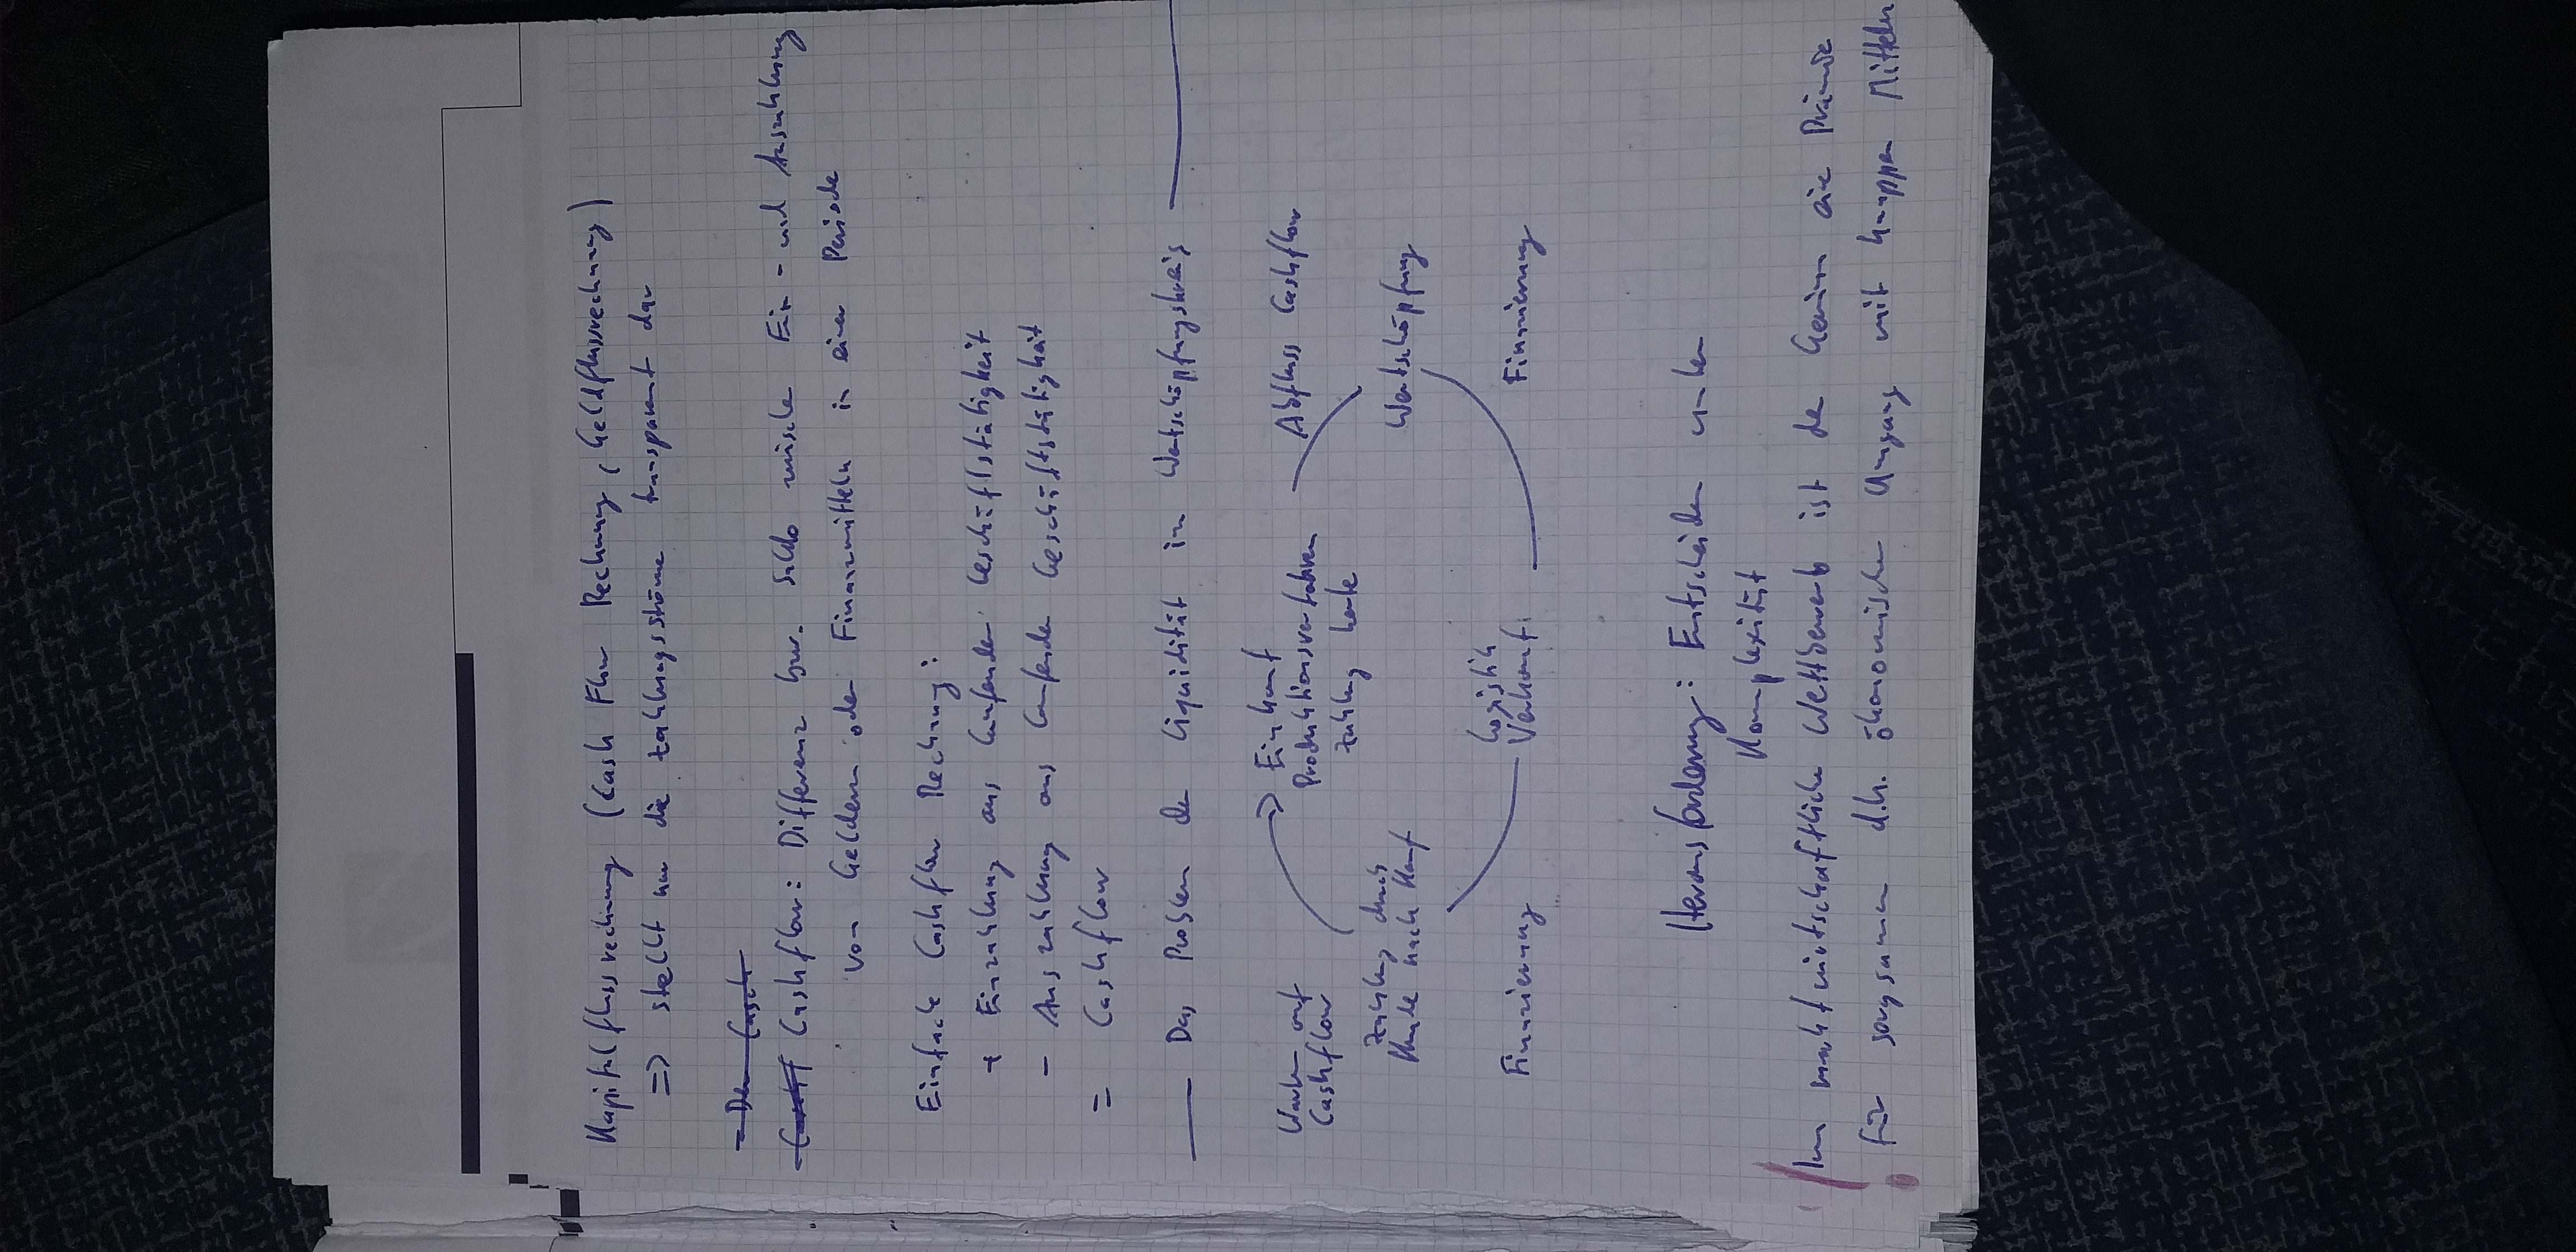 Kapitalflussrechnung (Cash Flow Rechnung, Geldflussrechnung)
=> stellt nur die Zahlungsströme transparent dar
- Der Casch
Cashf Cashflow: Differenz bzw. Saldo zwischen Ein- und Auszahlung
von Geldern oder Finanzmitteln in einer Periode
Einfache Cashflow Rechnung:
+ Einzahlung aus laufender Geschäftstätigkeit
- Auszahlung aus laufender Geschäftstätigkeit
= Cashflow
Das Problem der Liquidität im Wertschöpfungskreis
Warten auf
Cashflow
Einkauf
Produktionsverfahren
Zahlung heute
Abfluss Cashflow
Zahlung durch
Kunde nach Kauf
Wertschöpfung
Logistik
Verkauf
Finanzierung
Finanzierung
Herausforderung: Entscheiden unter
Komplexität
! Im marktwirtschaftlichen Wettbewerb ist der Gewinn eine Prämie
für sorgsamen d.h. ökonomischen Umgang mit knappen Mitteln